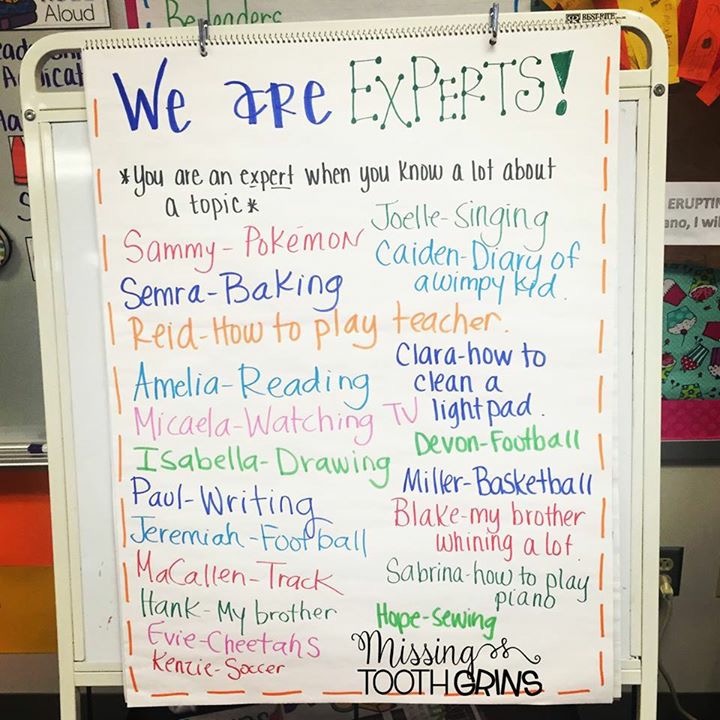 Aloud
Be leaders
BEST-RITE
We are EXPERTS!
*You are an expert when you know a lot about
a topic*
Joelle-Singing
Sammy-Pokémon
Caiden-Diary of
a wimpy kid.
Semra-Baking
Reid-How to play teacher.
Clara-how to
clean a
light pad.
Amelia-Reading
Micaela-Watching TV
Devon-Football
Isabella-Drawing
Miller-Basketball
Paul-Writing
Blake-my brother
whining a lot.
Jeremiah-Football
MaCallen-Track
Sabrina-how to play
piano
Hank-My brother
Hope-sewing
Evie-Cheetahs
Kenzie-Soccer
Missing
TOOTH GRINS
ERUPTIN
ano, I wil